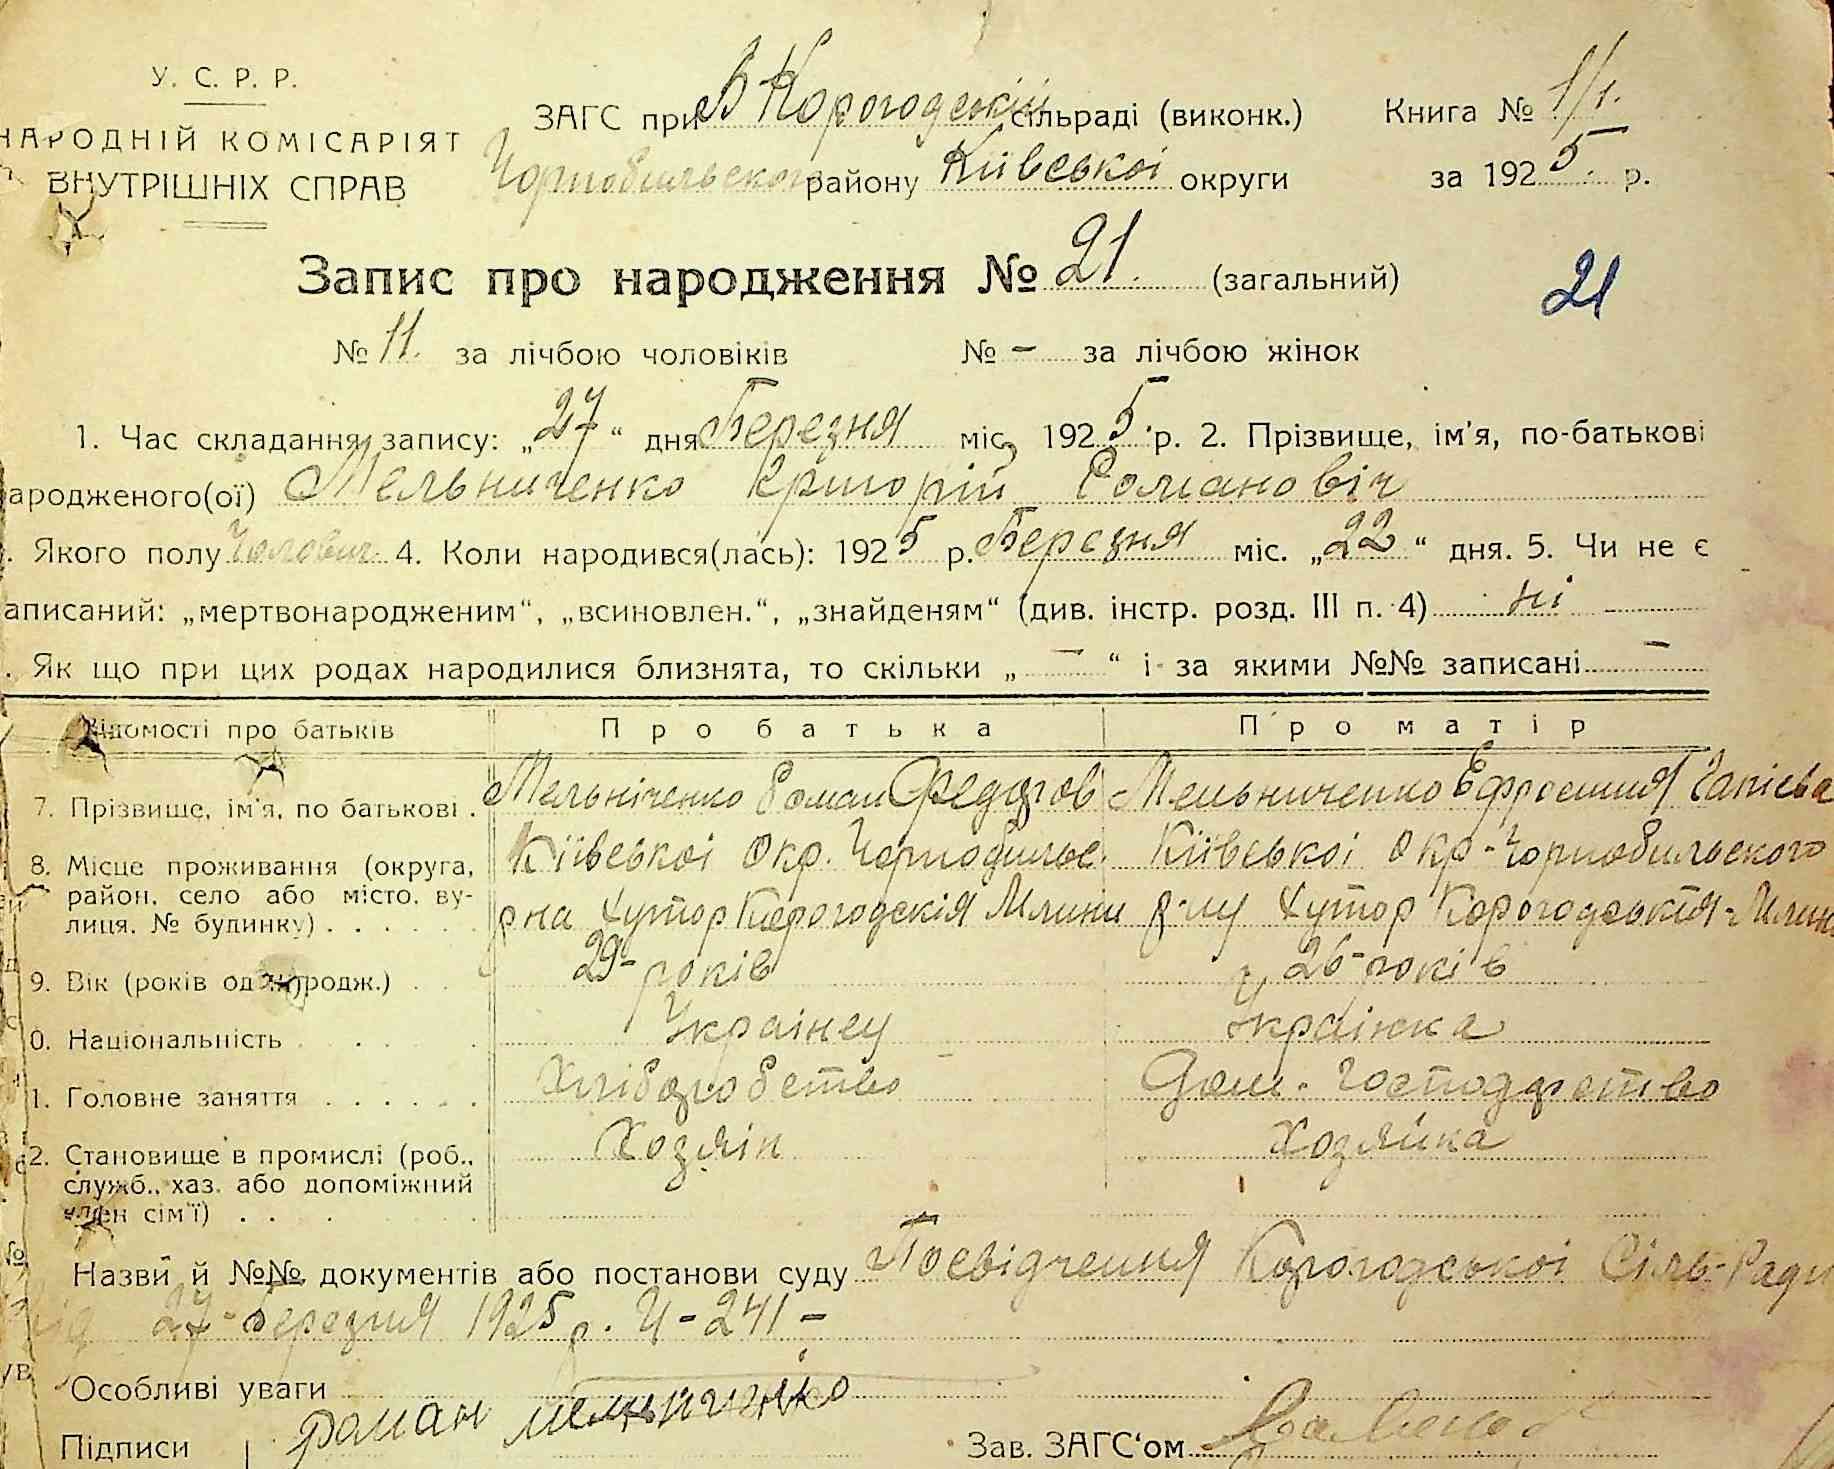 У. С. Р. Р.
НАРОДНІЙ КОМІСАРІЯТ
ВНУТРІШНІХ СПРАВ
ЗАГС при В Корогодській сільраді (виконк.) Книга № 1/1.
Чорнобильского району Київської округи за 1925 р.
Запис про народження № 21. (загальний) 21
№ 11. за лічбою чоловіків № – за лічбою жінок
1. Час складання запису: „27“ дня Березня міс. 1925 р. 2. Прізвище, ім'я, по-батькові
ародженого(ої) Мельниченко Григорій Романовіч
. Якого полу Чоловіч. 4. Коли народився(лась): 1925 р. Березня міс. „22“ дня. 5. Чи не є
аписаний: „мертвонародженим“, „всиновлен.“, „знайденям“ (див. інстр. розд. III п. 4) ні
. Як що при цих родах народилися близнята, то скільки „ — “ і за якими №№ записані —
Відомості про батьків Про батька Про матір
7. Прізвище, ім'я, по батькові . Мельніченко Роман Федоров Мельниченко Ефросиния
8. Місце проживання (округа, Київської Окр. Чорнобильс. Київської Окр. Чорнобильского
район, село або місто, ву- р на Хутор Корогодскія Млини р-ну Хутор Корогодськія-Млин
лиця, № будинку) . . . . .
9. Вік (років од народж.) . . 29-років 26-років
0. Національність . . . . Українец Українка
1. Головне заняття . . . . . . Хліборобство Дом. Господарство
2. Становище в промислі (роб., Хозяін Хозяйка
служб., хаз. або допоміжний
член сім'ї) . . .
Назви й №№ документів або постанови суду Посвідчення Корогодської Сіль-Ради
від 27-березня 1925 р. Ч-241-
Особливі уваги
Підписи Роман Мельниченко Зав. ЗАГС'ом